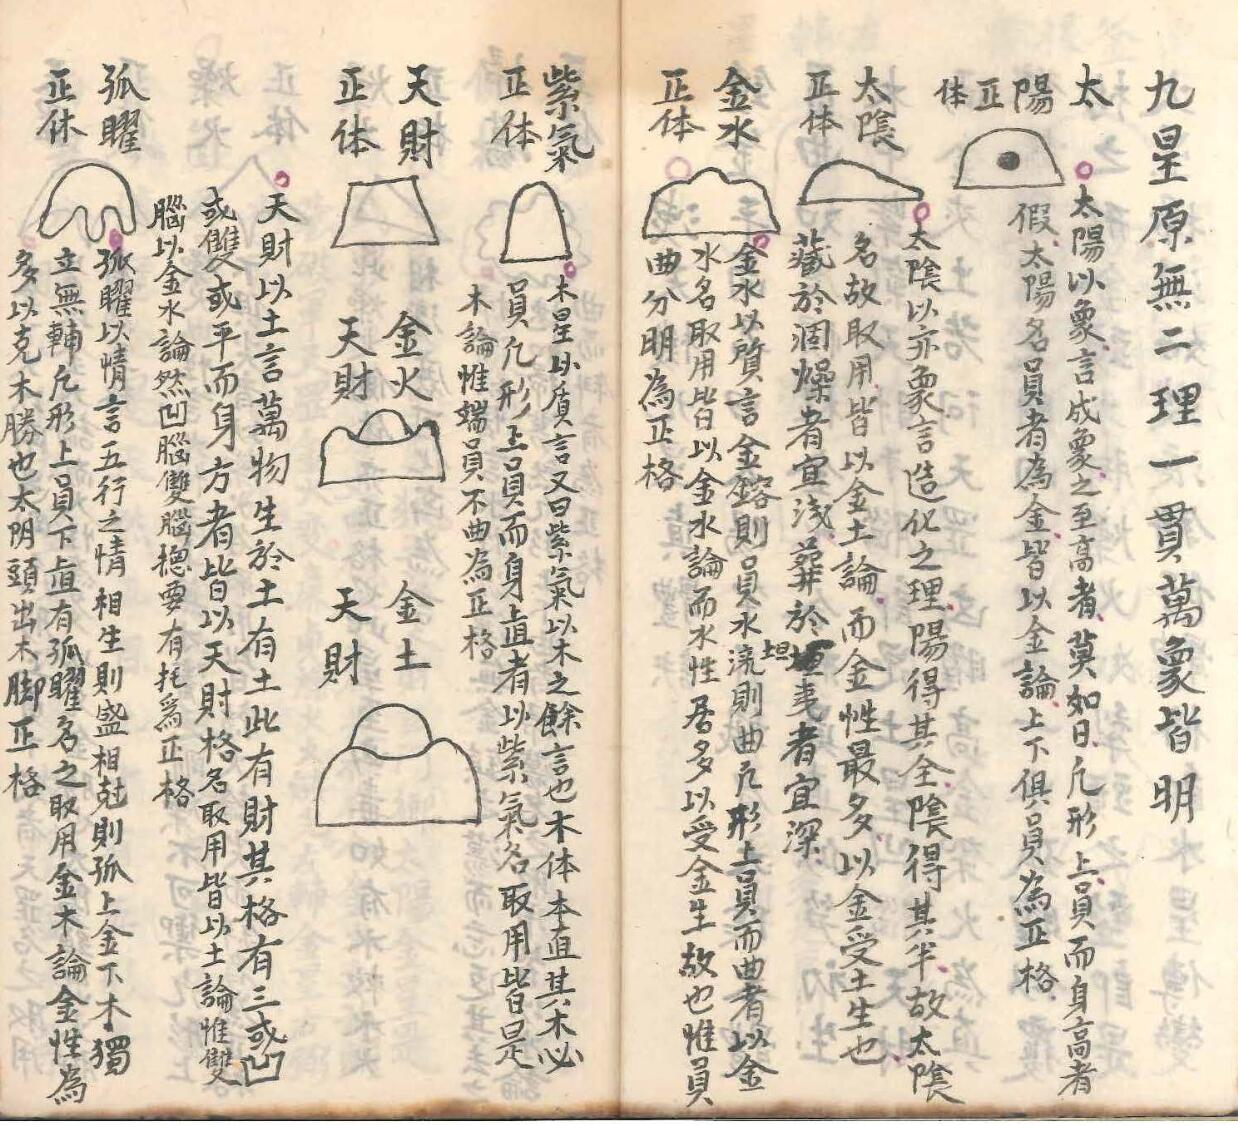 九星原無二理一貫萬象皆明
太陽正体
太陽以象言成象之至高者莫如日凡形上員而身高者
假太陽名員者為金皆以金論上下俱員為正格
太陰正体
太陰以亦象言造化之理陽得其全陰得其半故太陰
名故取用皆以金土論而金性最多以金受土生也
藏於涸燥者宜淺葬於坦夷者宜深
金水正体
金水以質言金鎔則員水流則曲凡形上員而曲者以金
水名取用皆以金水論而水性居多以受金生故也惟員
曲分明為正格
紫氣正体
木星以质言又曰紫氣以木之餘言也木体本直其木必
員凡形上員而身直者以紫氣名取用皆是
木論惟端員不曲為正格
天財正体
金火天財
金土天財
天財以土言萬物生於土有土此有財其格有三或凹
或雙或平而身方者皆以天財格名取用皆以土論惟雙
腦以金水論然凹腦雙腦摠要有托為正格
孤曜正体
孤曜以情言五行之情相生則盛相尅則孤上金下木獨
立無輔凡形上員下直有孤曜名之取用金木論金性為
多以克木勝也太阴頭出木脚正格